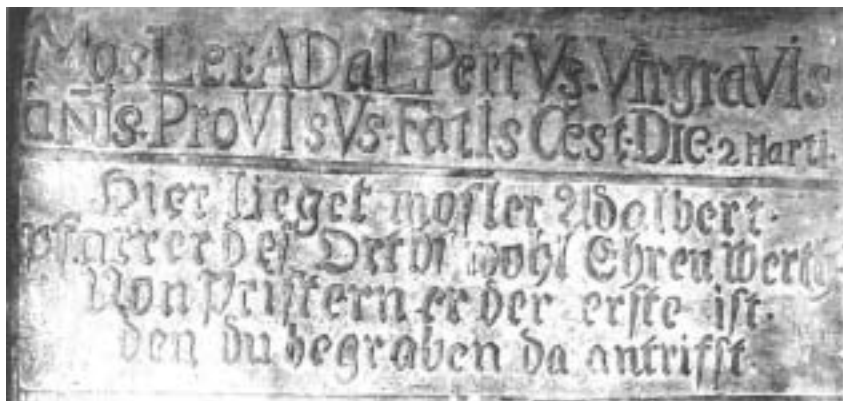 MosLer·ADaLPertVs·VIrgraVIs
aÑIs·ProVIsVs·FatIs Cest·DIC·2 Marti·
Hier lieget mosler Adalbert·
pfarrer des Orths wohl Ehren werth·
Von Pristern er der erste ist·
den du begraben da antriffst·